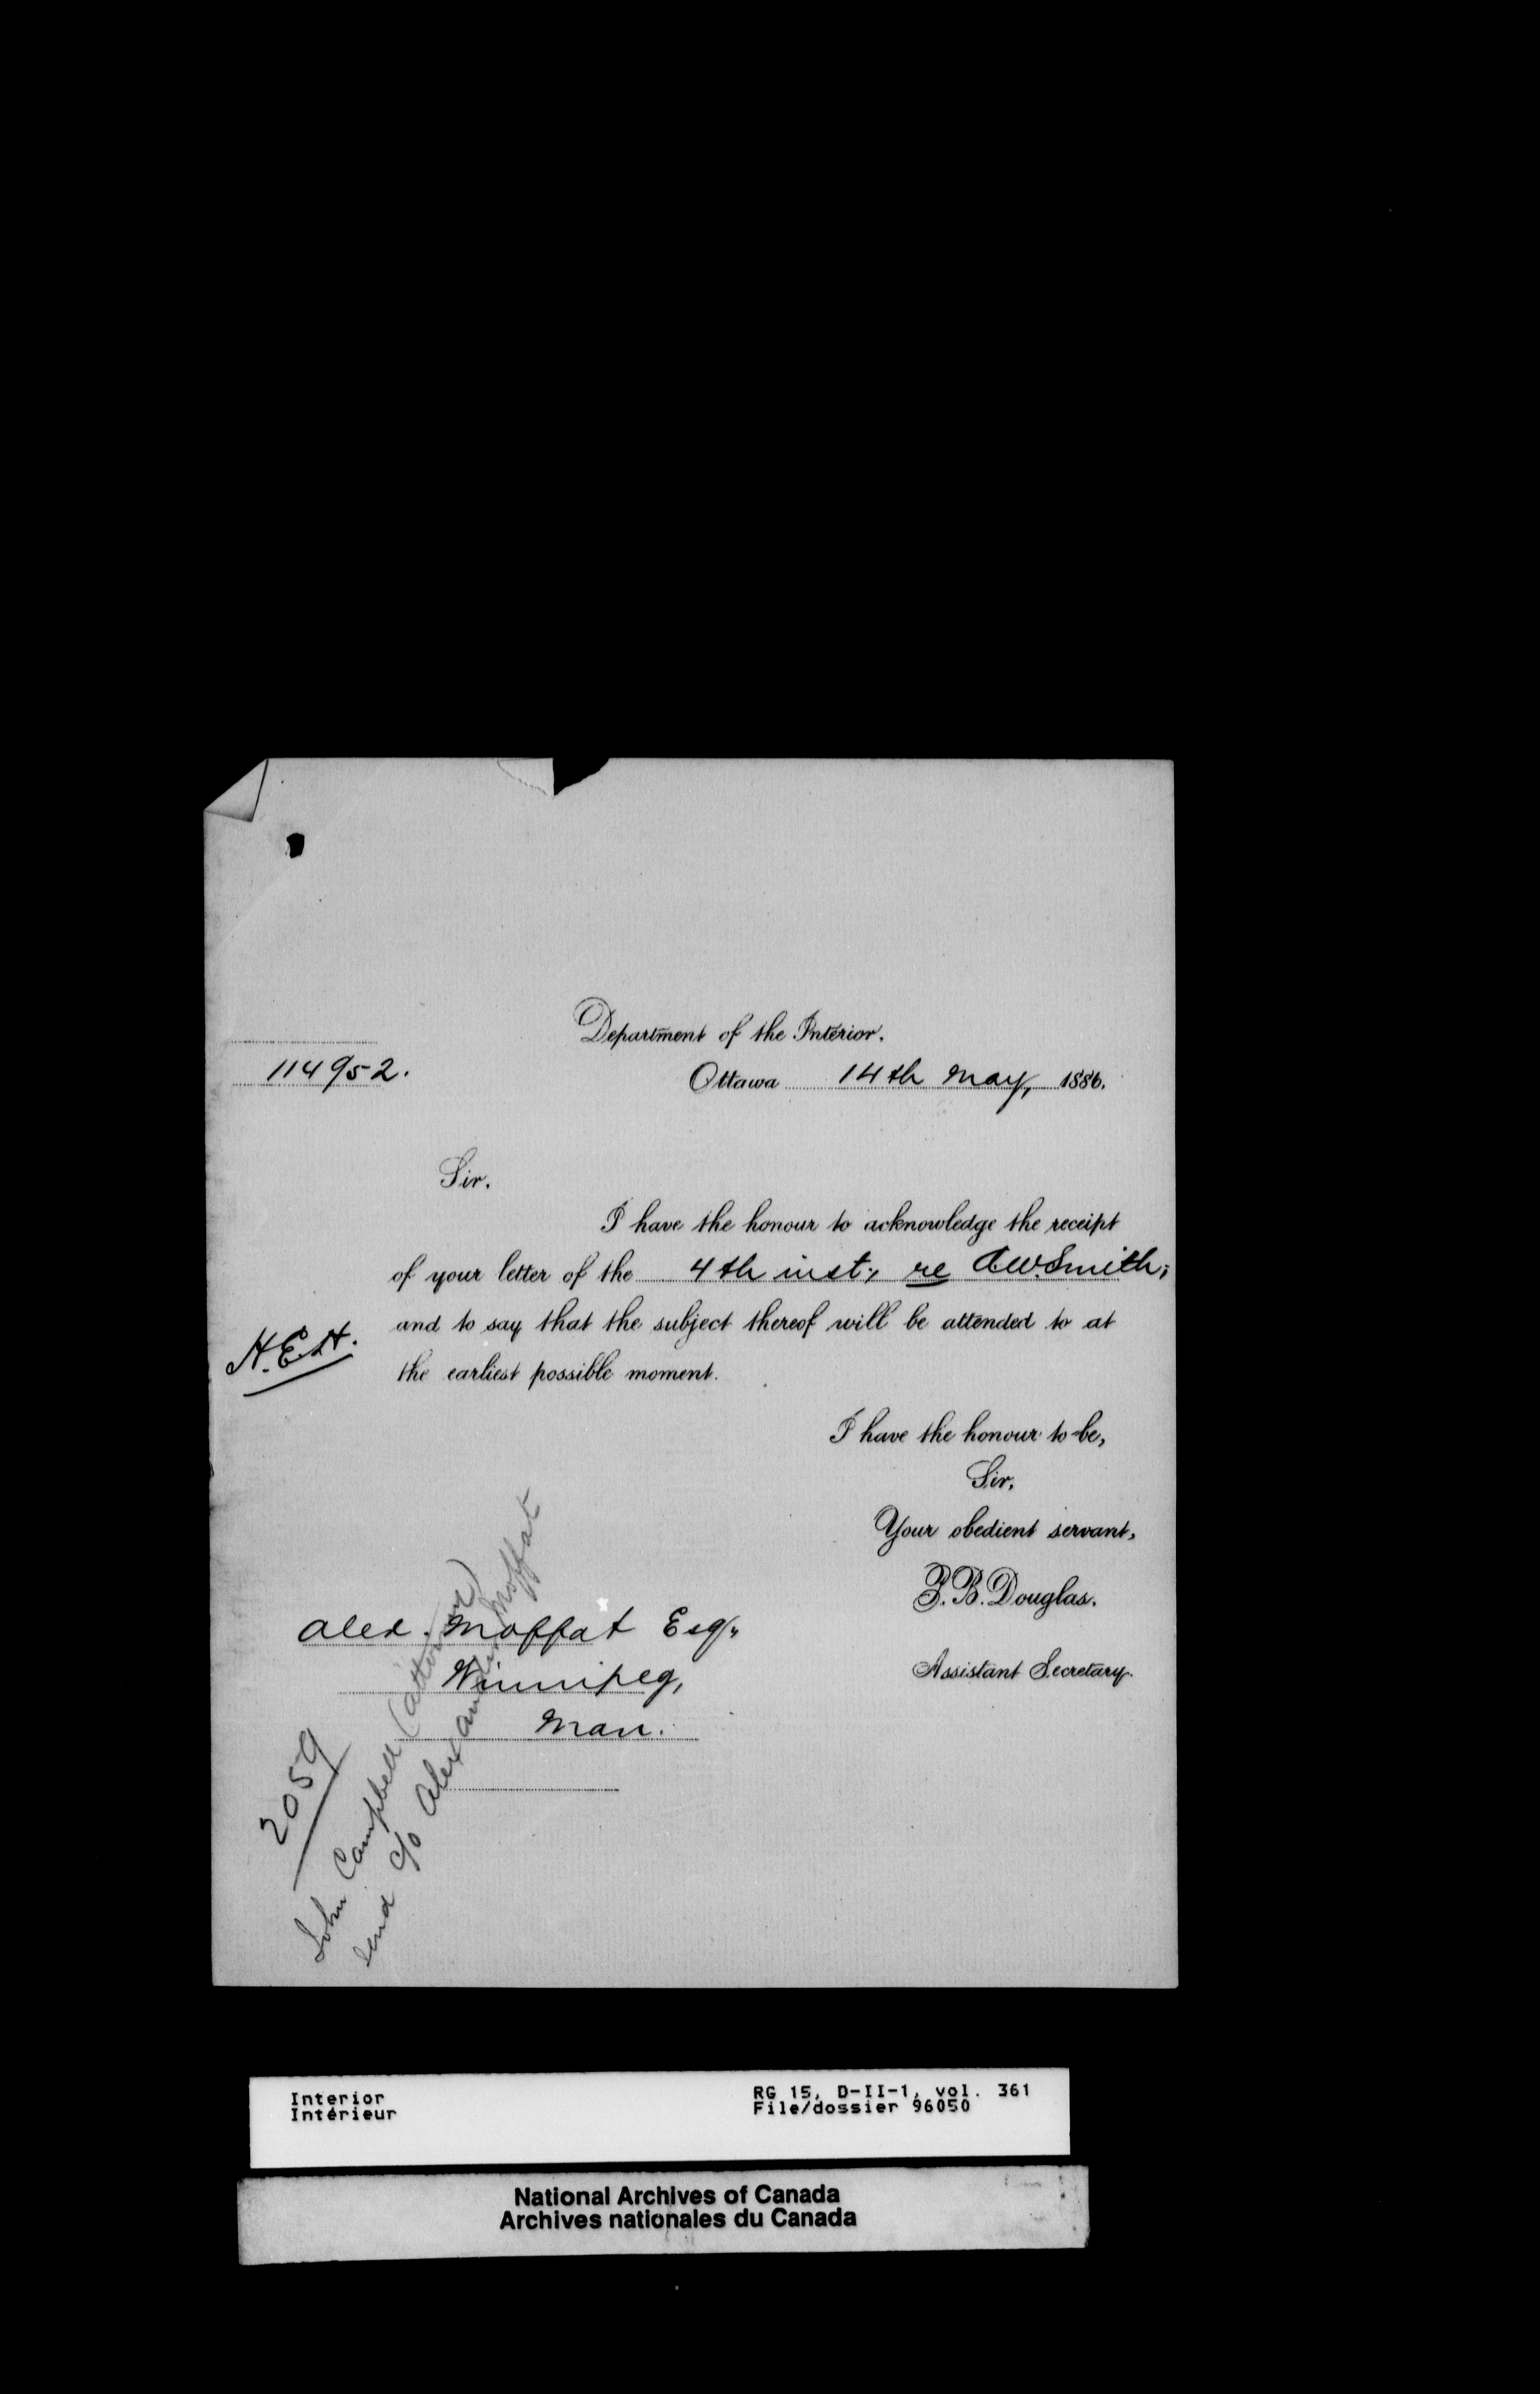 Department of the Interior.
114952.
Ottawa 14th May, 1886.
Sir.
I have the honour to acknowledge the receipt
of your letter of the 4th inst; re A.W. Smith;
and to say that the subject thereof will be attended to at
H.E.H.
the earliest possible moment.
I have the honour to be,
Sir,
Your obedient servant,
P. B. Douglas.
Assistant Secretary.
Alex. Moffat Esq.
Winnipeg,
Man.
2059
John Campbell (attorney)
Send c/o Alexander Moffat
Interior
Intérieur
RG 15, D-II-1, vol. 361
File/dossier 96050
National Archives of Canada
Archives nationales du Canada